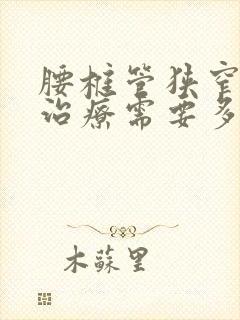 腰椎管狭窄
治疗需要多
木苏里